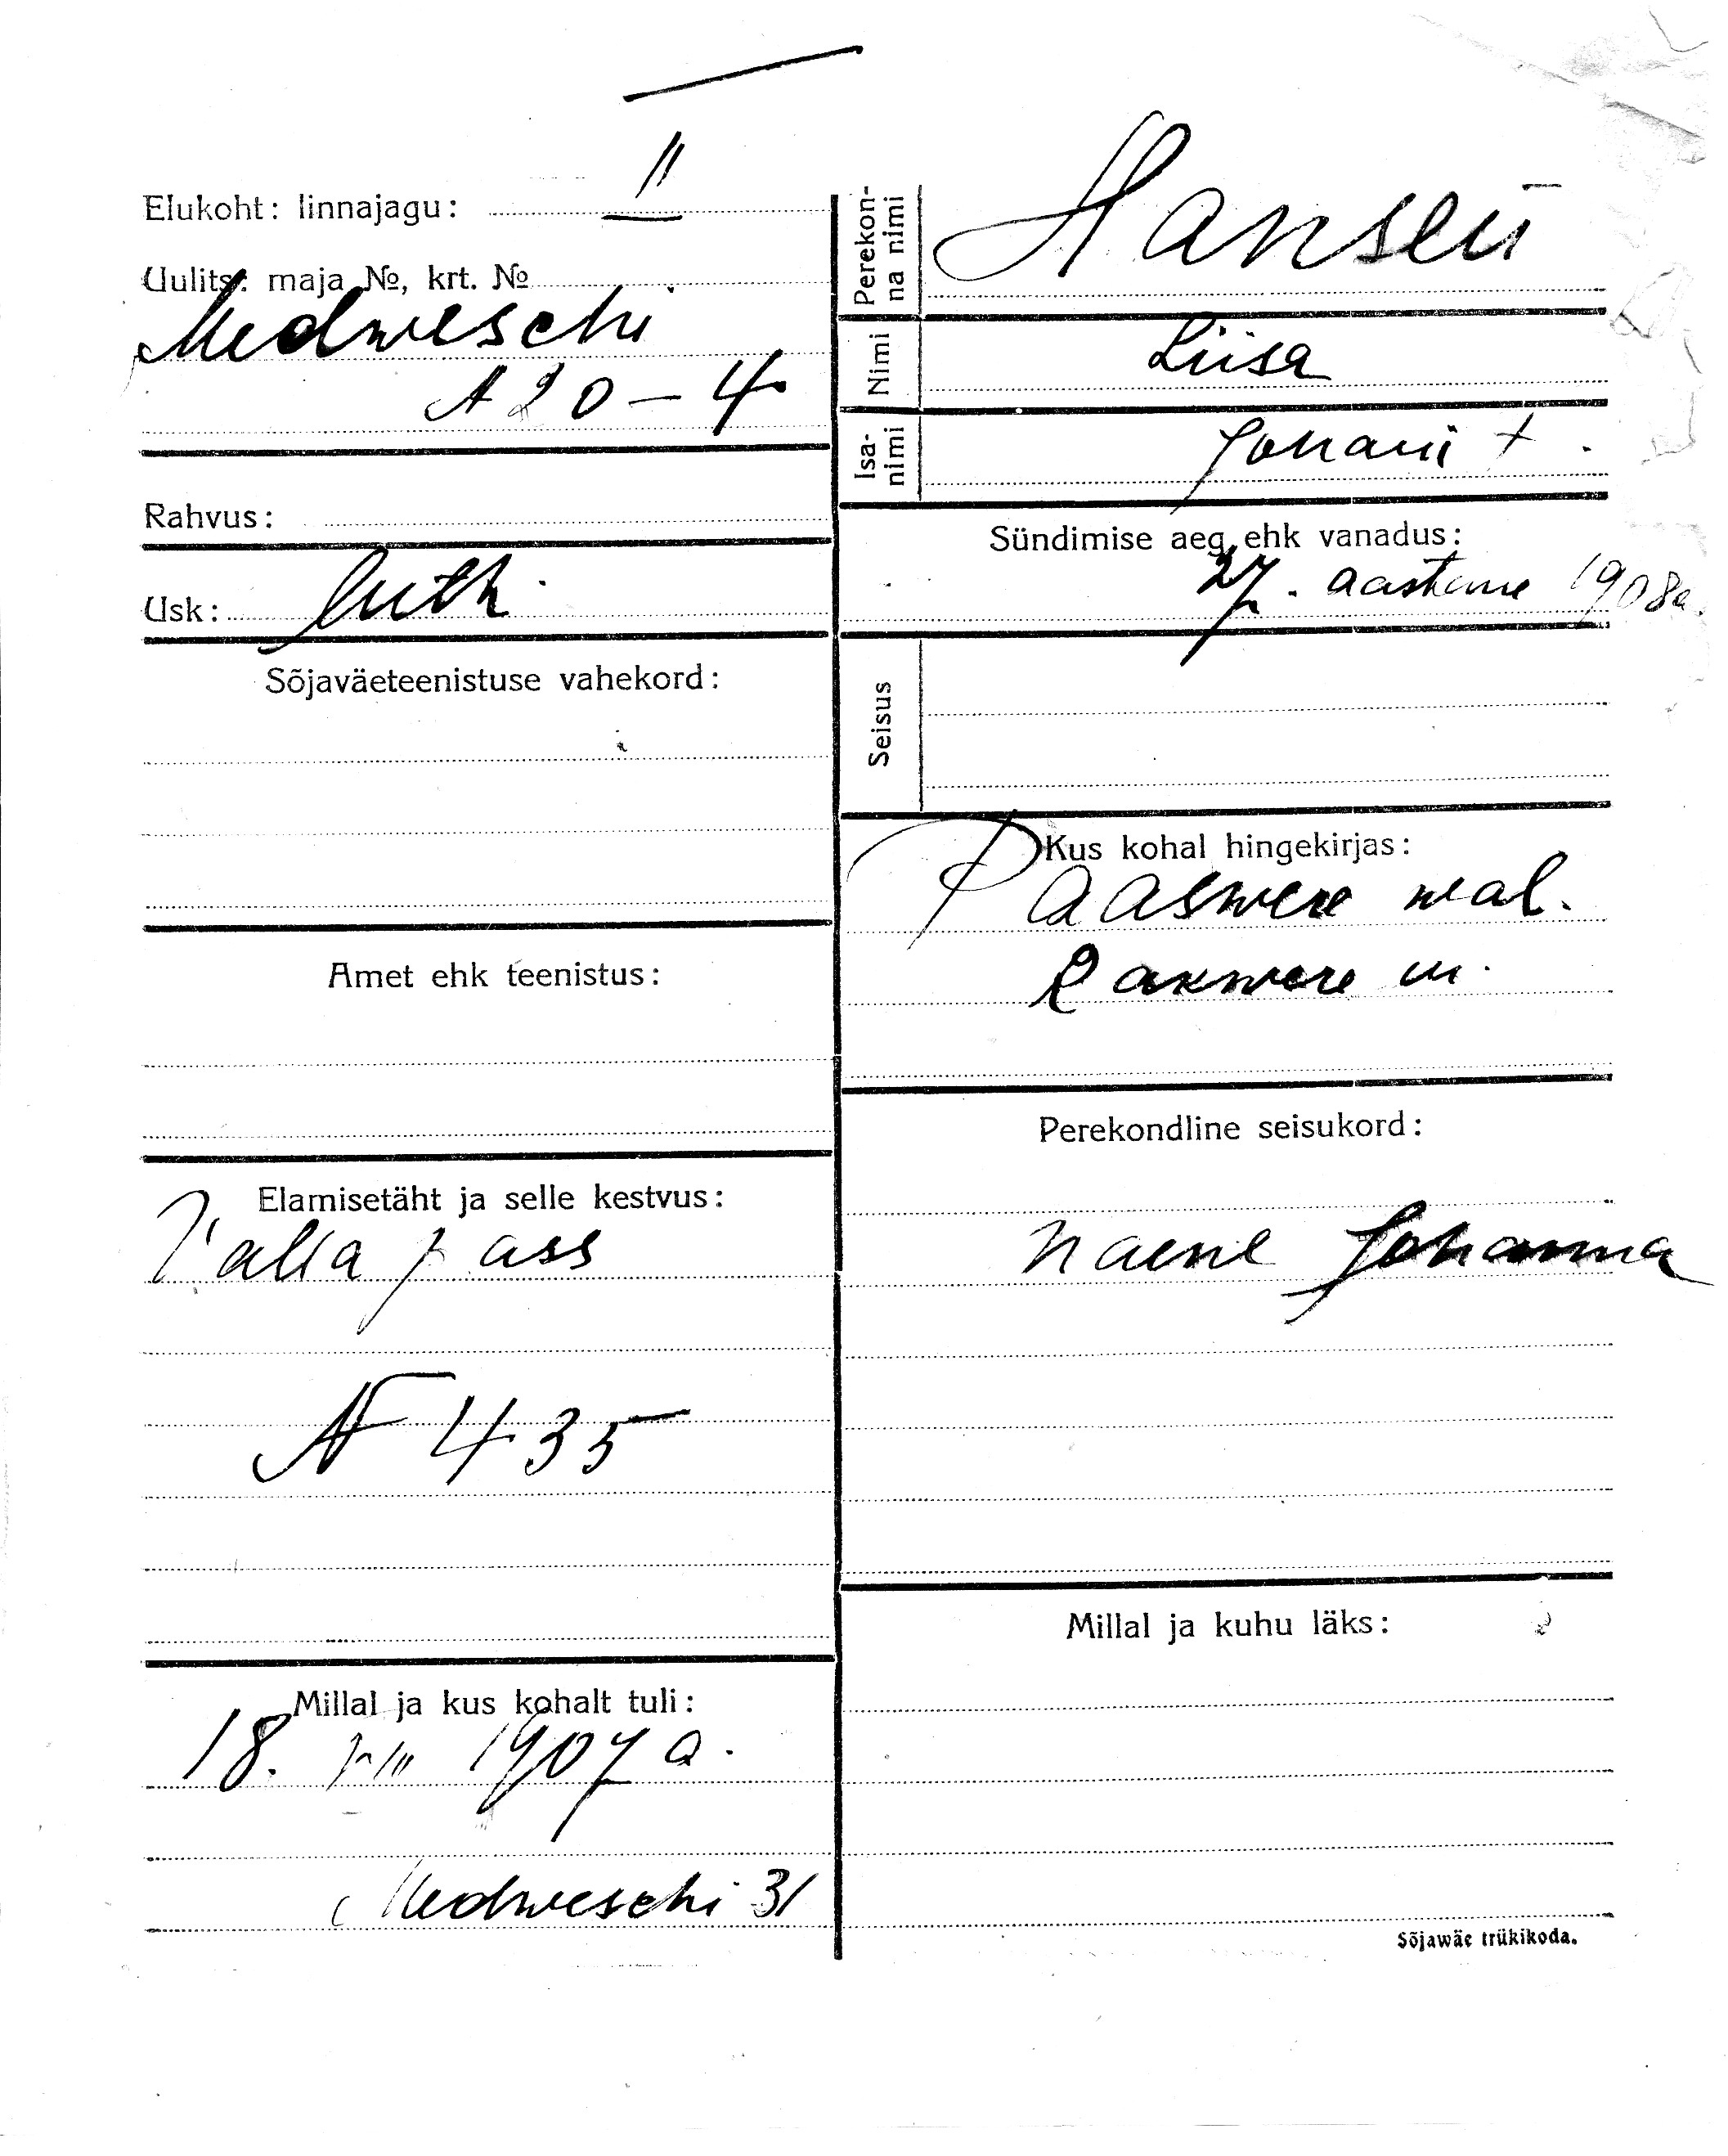 Elukoht: linnajagu: II
Uulits: maja №, krt. №
Medweschi
№ 20-4
Rahvus:
Usk: luth.
Sõjaväeteenistuse vahekord:
Amet ehk teenistus:
Elamisetäht ja selle kestvus:
Valla pass
№ 435
Millal ja kus kohalt tuli:
18. VIII 1907 a.
Medweschi 31
Perekon-
na nimi
Hansen
Nimi Liisa
Isa-
nimi
Johani +.
Sündimise aeg ehk vanadus:
27. aastane 1908a.
Seisus
Kus kohal hingekirjas:
Paaswere wal.
Rakwere m.
Perekondline seisukord:
naene Johanna
Millal ja kuhu läks:
Sõjawäe trükikoda.